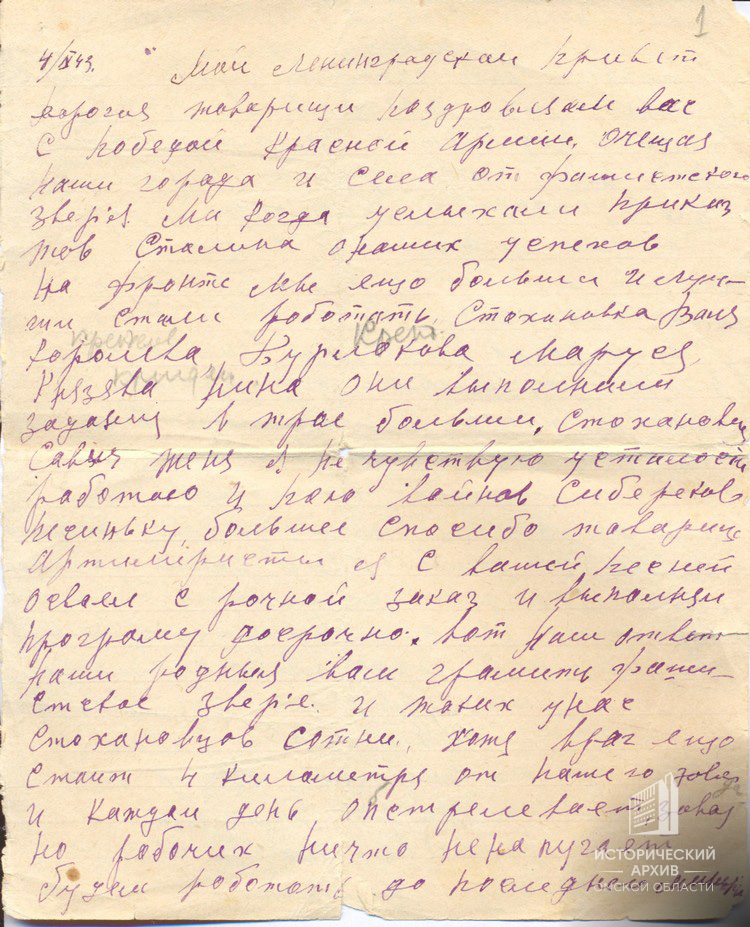 1
4/X 43. Мой Ленинградскай привет
дорогия товарищи поздровляем вас
с победой красной армии, очещая
наши города и села от фашистского
зверя. Мы когда услыхали приказ
тов Сталина онаших успехов
на фронте мы ещо больши и луч-
ши стали работать. Стахановка Валя
Королева Бурлокова Маруся,
Князева Нина они выполнили
задания в трое больши. Стохановец
Савця женя я не чувствую усталости
работою и пою вайнов Сибереков
песиньку, большее спосибо товарищи
Артилиристы я с вашей песней
освоем с рочной заказ и выполнем
програму досрочно. вот наш ответ
наши родныя вам грамить фаши-
стское зверё. и таких унас
стохановцов сотни, хотя враг ещо
стаит 4 километра от нашего заво
и каждай день опстреливает завод
но рабочих ничто ненапугает
будем работать до последней
ИСТОРИЧЕСКИЙ
АРХИВ
ОМСКОЙ ОБЛАСТИ